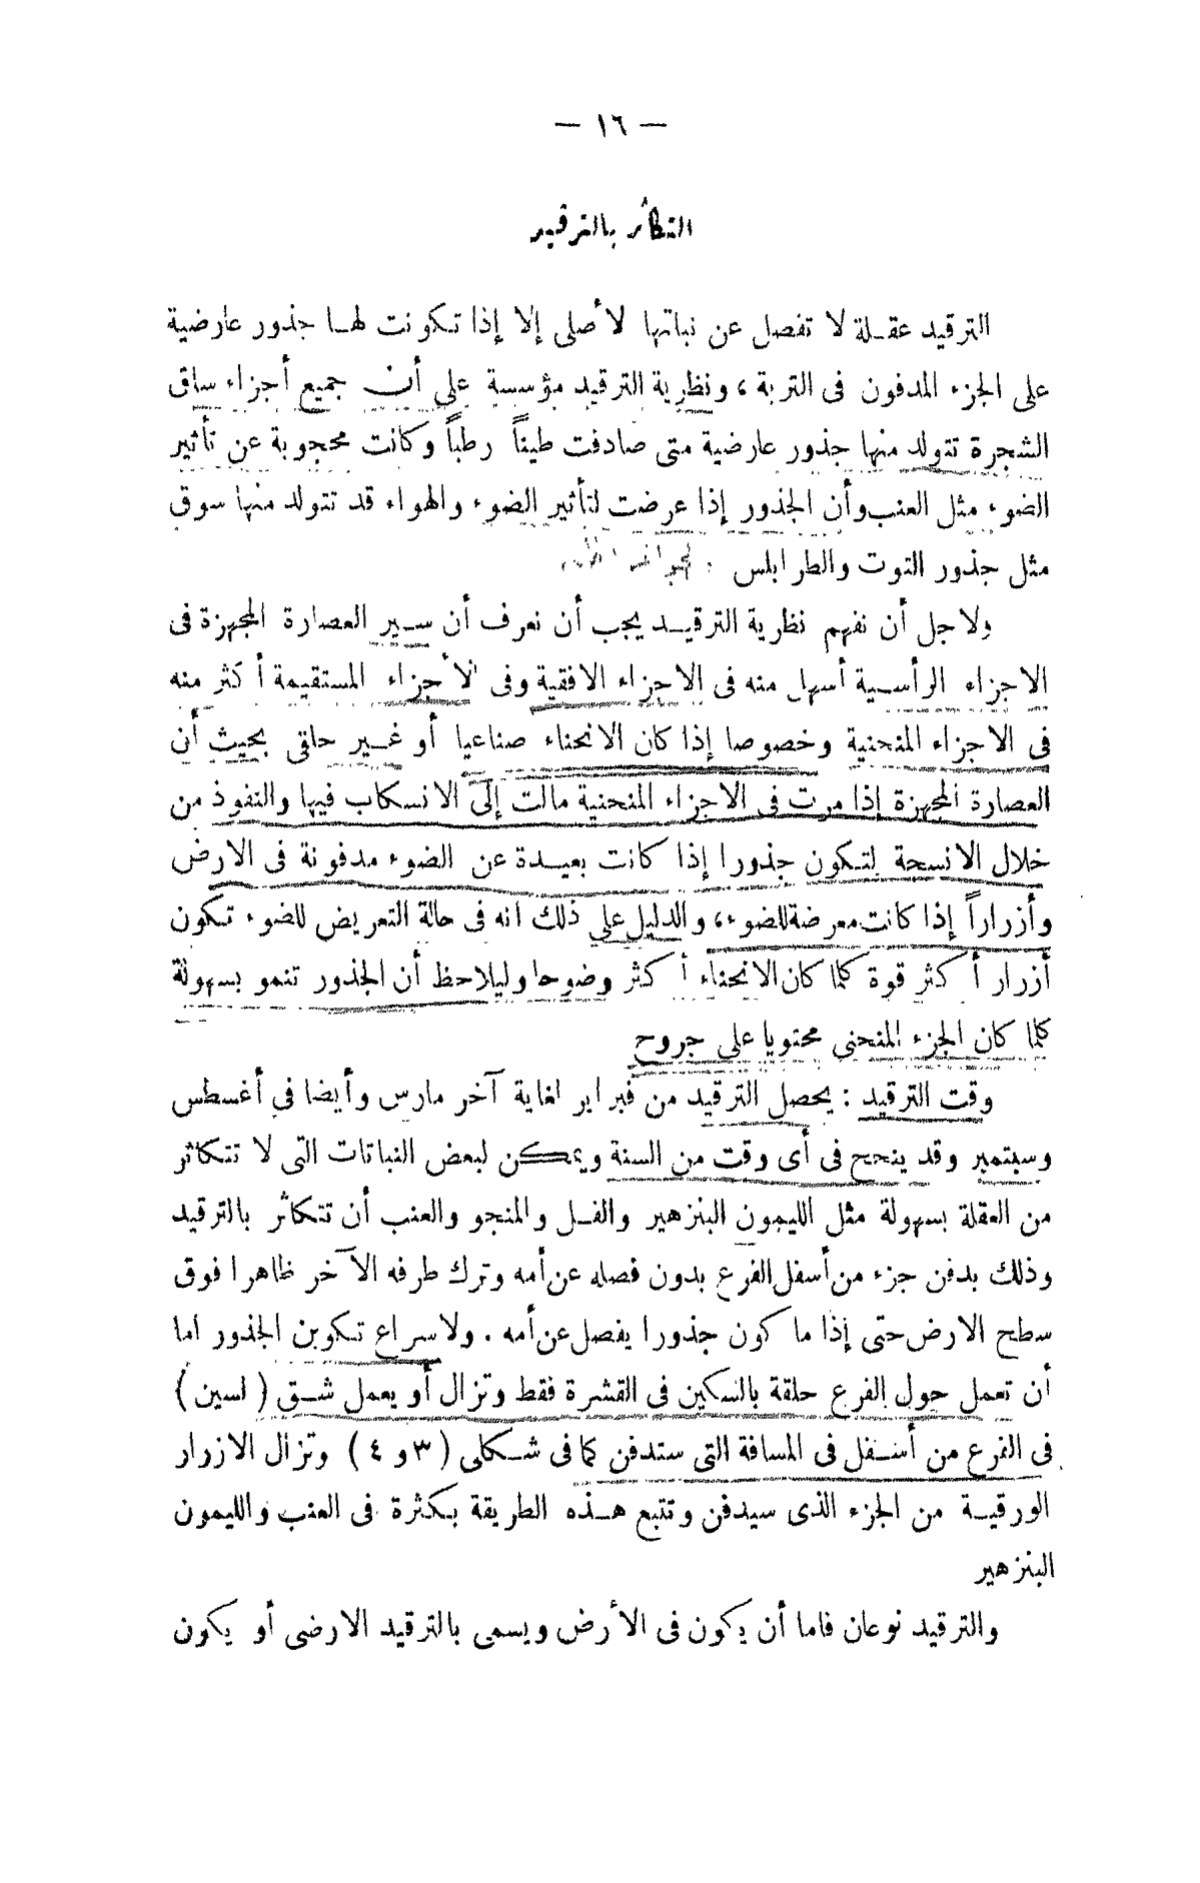 — ١٦ —
التكاثر بالترقيد
الترقيد عقلة لا تفصل عن نباتها لأصلى إلا إذا تكونت لها جذور عارضية
على الجزء المدفون فى التربة ، ونظرية الترقيد مؤسسة على أن جميع أجزاء ساق
الشجرة تتولد منها جذور عارضية متى صادفت طيناً رطباً وكانت محجوبة عن تأثير
الضوء مثل العنب وأن الجذور إذا عرضت لتأثير الضوء والهواء قد تتولد منها سوق
مثل جذور التوت والطرابلس
ولاجل أن نفهم نظرية الترقيد يجب أن نعرف أن سير العصارة المجهزة فى
الاجزاء الرأسية أسهل منه فى الاجزاء الافقية وفى الأجزاء المستقيمة أكثر منه
فى الاجزاء المنحنية وخصوصا إذا كان الانحناء صناعيا أو غير حلقى بحيث أن
العصارة المجهزة إذا مرت فى الاجزاء المنحنية مالت إلى الانسكاب فيها والنفوذ من
خلال الانسجة لتكون جذورا إذا كانت بعيدة عن الضوء مدفونة فى الارض
وأزراراً إذا كانت معرضة للضوء، والدليل على ذلك انه فى حالة التعريض للضوء تكون
أزرار أكثر قوة كلما كان الانحناء أكثر وضوحا وليلاحظ أن الجذور تنمو بسهولة
كلما كان الجزء المنحنى محتويا على جروح
وقت الترقيد : يحصل الترقيد من فبراير لغاية آخر مارس وأيضا فى أغسطس
وسبتمبر وقد ينجح فى أى وقت من السنة ويمكن لبعض النباتات التى لا تتكاثر
من العقلة بسهولة مثل الليمون البنزهير والفل والمنجو والعنب أن تتكاثر بالترقيد
وذلك بدفن جزء من أسفل الفرع بدون فصله عن أمه وترك طرفه الآخر ظاهرا فوق
سطح الارض حتى إذا ما كون جذورا يفصل عن أمه . ولاسراع تكوين الجذور اما
أن تعمل حول الفرع حلقة بالسكين فى القشرة فقط وتزال أو يعمل شق ( لسين )
فى الفرع من أسفل فى المسافة التى ستدفن كما فى شكلى ( ٣ و ٤ ) وتزال الازرار
الورقية من الجزء الذى سيدفن وتتبع هذه الطريقة بكثرة فى العنب والليمون
البنزهير
والترقيد نوعان فاما أن يكون فى الأرض ويسمى بالترقيد الارضى أو يكون